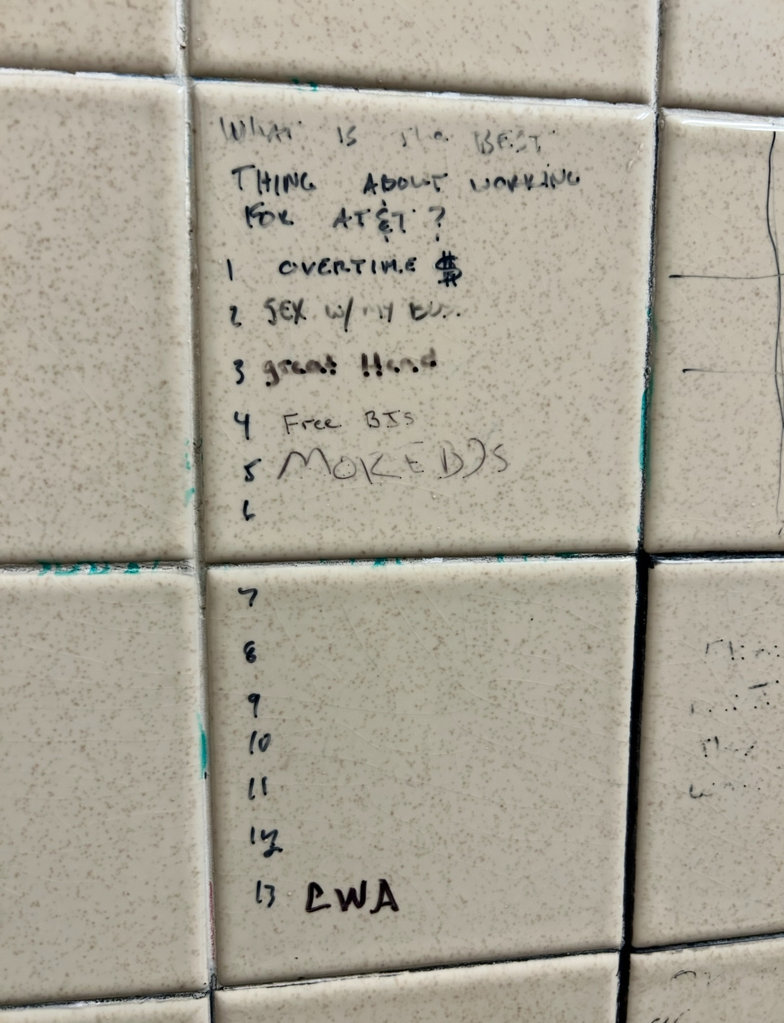 WHAT IS THE BEST
THING ABOUT WORKING
FOR AT&T ?
1 OVERTIME $
2 SEX W/ MY
3 great Head
4 Free BJs
5 MOKE BJS
6
7
8
9
10
11
12
13 CWA